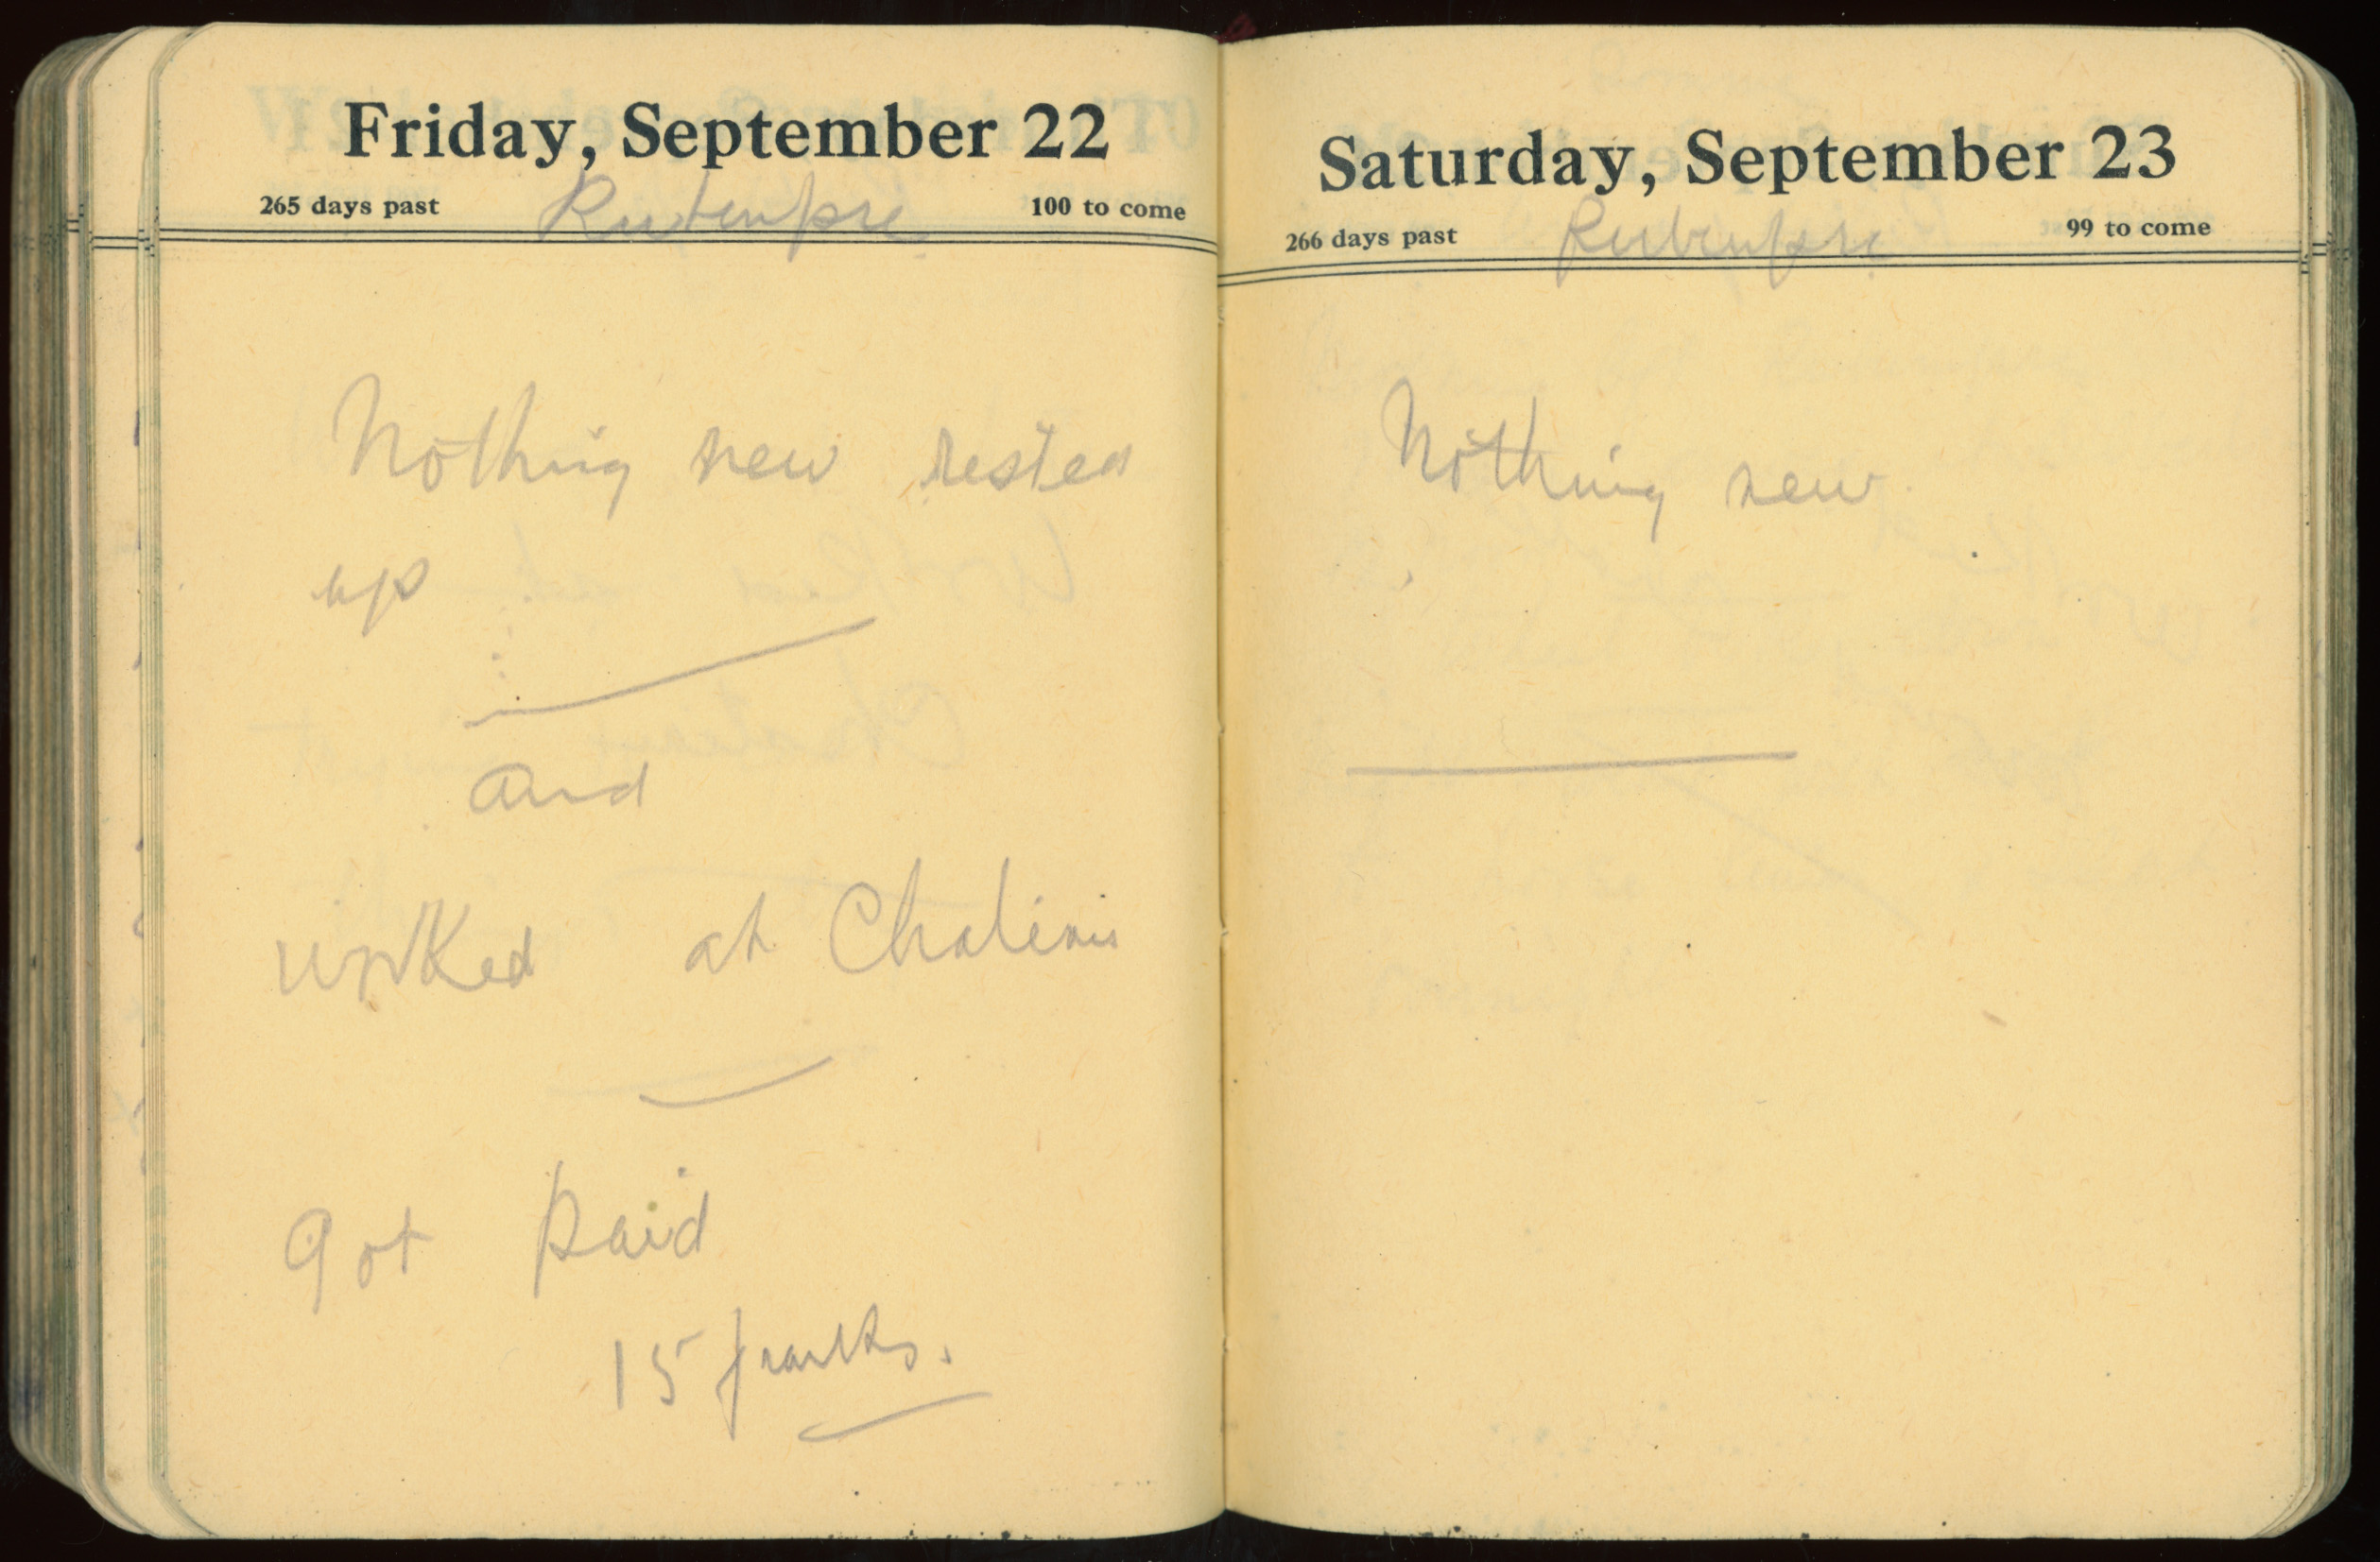 Friday, September 22
265 days past Rubempre 100 to come
Nothing new rested
up
and
worked at
got paid
15 franks.
Saturday, September 23
266 days past Rubempre 99 to come
Nothing new